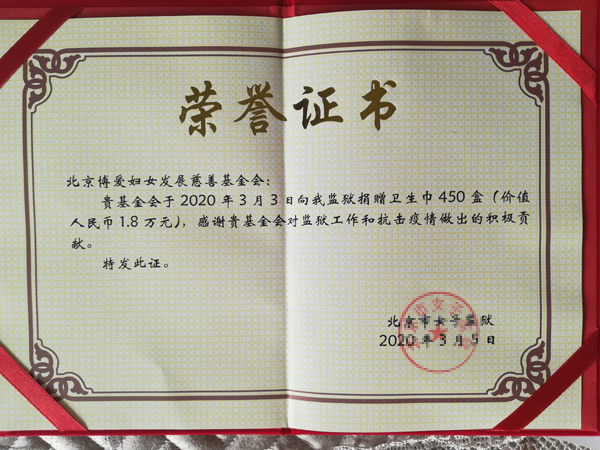 荣誉证书
北京博爱妇女发展慈善基金会：
贵基金会于2020年3月3日向我监狱捐赠卫生巾450盒（价值
人民币1.8万元），感谢贵基金会对监狱工作和抗击疫情做出的积极贡
献。
特发此证。
北京市女子监狱
2020年3月5日